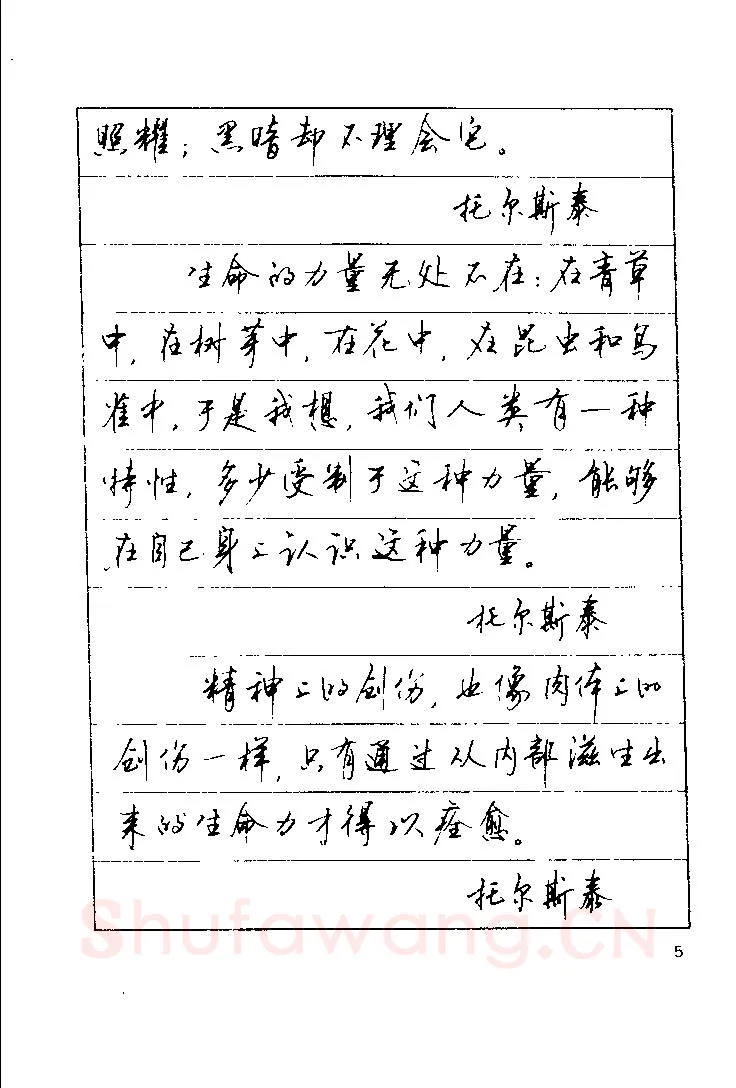 照耀；黑暗却不理会它。
托尔斯泰
生命的力量无处不在：在青草
中，在树芽中，在花中，在昆虫和鸟
雀中，于是我想，我们人类有一种
特性，多少受制于这种力量，能够
在自己身上认识这种力量。
托尔斯泰
精神上的创伤，也像肉体上的
创伤一样，只有通过从内部滋生出
来的生命力才得以痊愈。
托尔斯泰
Shufawang.CN
5